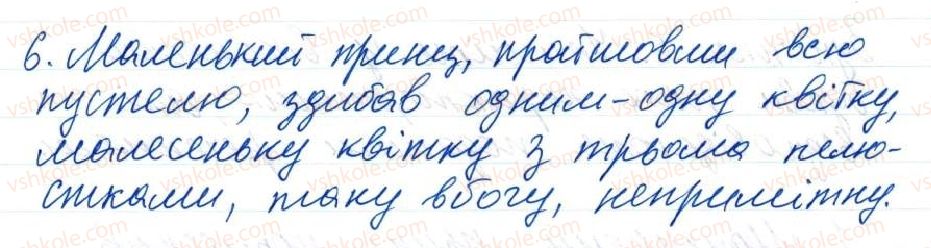 6. Маленький принц, пройшовши всю
пустелю, здибав одним-одну квітку,
малесеньку квітку з трьома пелю-
стками, таку вбогу, непримітну.